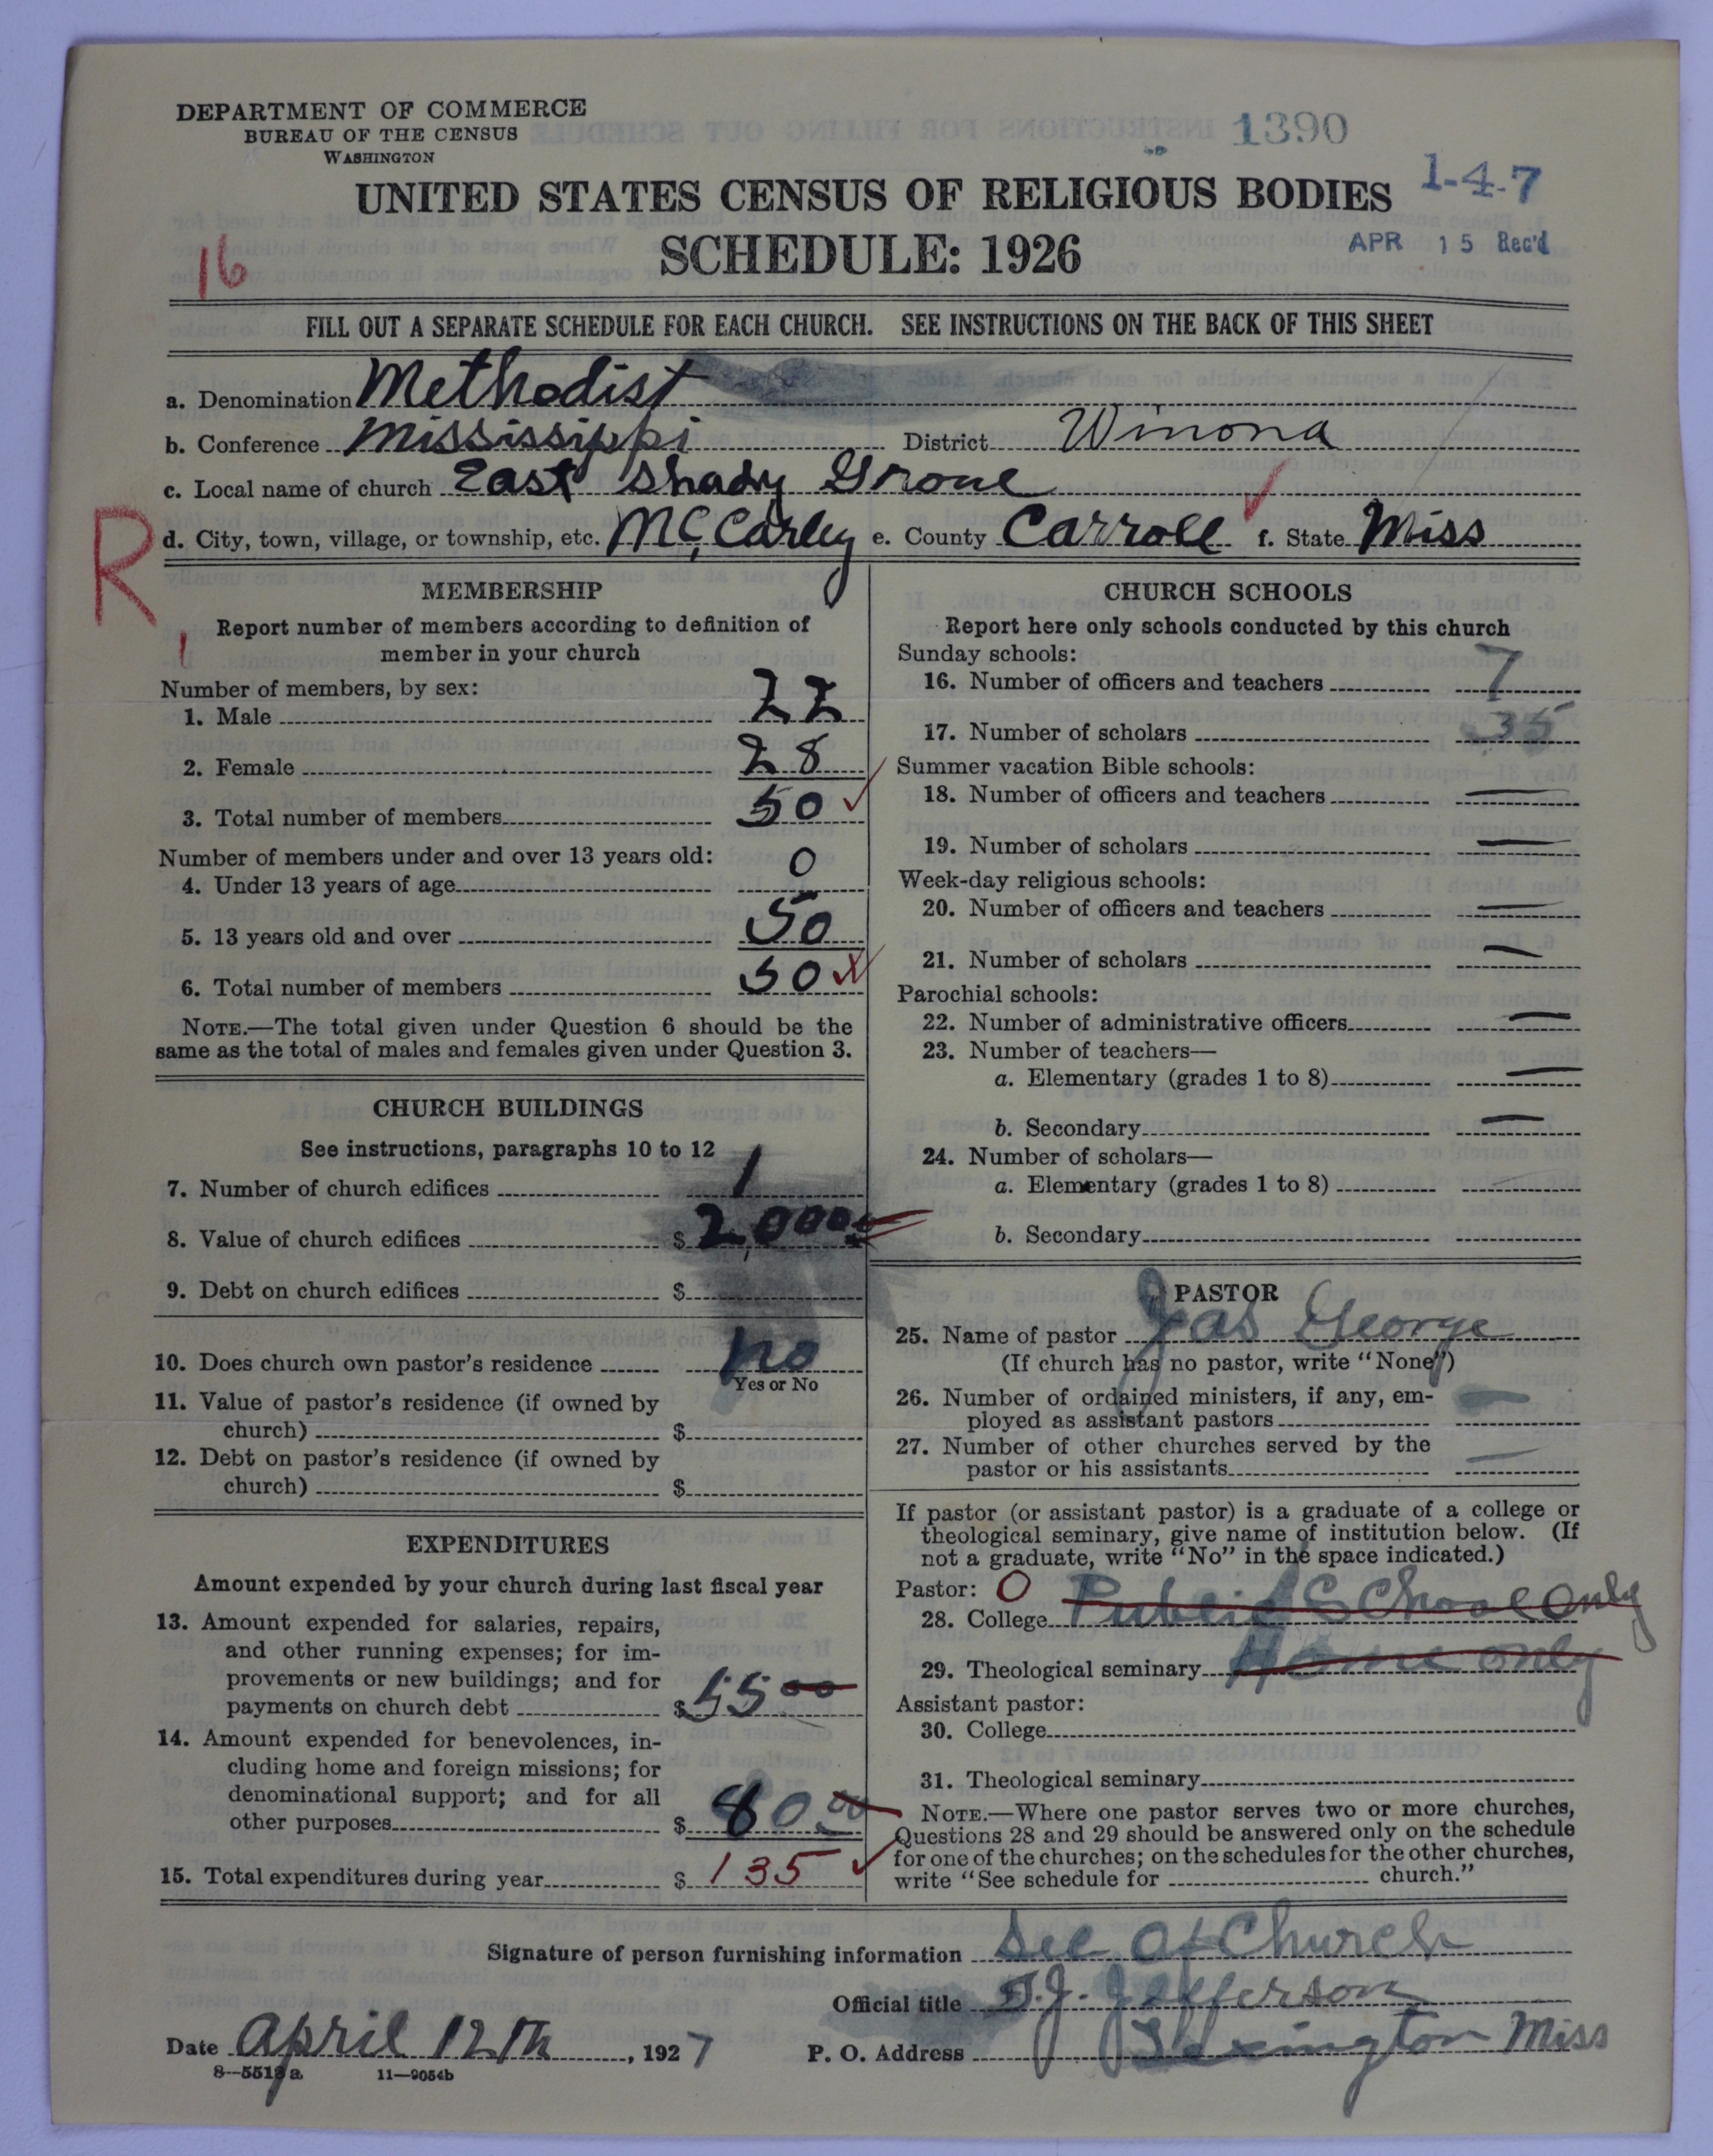 DEPARTMENT OF COMMERCE
BUREAU OF THE CENSUS
WASHINGTON
1390
1-4-7
UNITED STATES CENSUS OF RELIGIOUS BODIES
SCHEDULE: 1926
APR 15 Rec'd
16
FILL OUT A SEPARATE SCHEDULE FOR EACH CHURCH. SEE INSTRUCTIONS ON THE BACK OF THIS SHEET
a. Denomination Methodist
b. Conference Mississippi District Winona
c. Local name of church East Shady Grove
d. City, town, village, or township, etc. McCarley e. County Carroll f. State Miss
R
MEMBERSHIP
Report number of members according to definition of
member in your church
Number of members, by sex:
1. Male 22
2. Female 28
3. Total number of members 50
Number of members under and over 13 years old:
4. Under 13 years of age 0
5. 13 years old and over 50
6. Total number of members 50
NOTE.—The total given under Question 6 should be the
same as the total of males and females given under Question 3.
CHURCH BUILDINGS
See instructions, paragraphs 10 to 12
7. Number of church edifices 1
8. Value of church edifices $ 2,000
9. Debt on church edifices $
10. Does church own pastor's residence no
Yes or No
11. Value of pastor's residence (if owned by
church) $
12. Debt on pastor's residence (if owned by
church) $
EXPENDITURES
Amount expended by your church during last fiscal year
13. Amount expended for salaries, repairs,
and other running expenses; for im-
provements or new buildings; and for
payments on church debt $ 55 00
14. Amount expended for benevolences, in-
cluding home and foreign missions; for
denominational support; and for all
other purposes $ 80 00
15. Total expenditures during year $ 135
CHURCH SCHOOLS
Report here only schools conducted by this church
Sunday schools:
16. Number of officers and teachers 7
17. Number of scholars 35
Summer vacation Bible schools:
18. Number of officers and teachers —
19. Number of scholars —
Week-day religious schools:
20. Number of officers and teachers —
21. Number of scholars —
Parochial schools:
22. Number of administrative officers —
23. Number of teachers—
a. Elementary (grades 1 to 8) —
b. Secondary —
24. Number of scholars—
a. Elementary (grades 1 to 8)
b. Secondary
PASTOR
25. Name of pastor Jas George
(If church has no pastor, write "None")
26. Number of ordained ministers, if any, em-
ployed as assistant pastors —
27. Number of other churches served by the
pastor or his assistants —
If pastor (or assistant pastor) is a graduate of a college or
theological seminary, give name of institution below. (If
not a graduate, write "No" in the space indicated.)
Pastor: O
28. College Public School Only
29. Theological seminary Home only
Assistant pastor:
30. College
31. Theological seminary
NOTE.—Where one pastor serves two or more churches,
Questions 28 and 29 should be answered only on the schedule
for one of the churches; on the schedules for the other churches,
write "See schedule for church."
Signature of person furnishing information Sec of Church
Official title T.J. Jefferson
Date April 12th, 1927 P. O. Address Lexington Miss
8—5513a 11—9054b